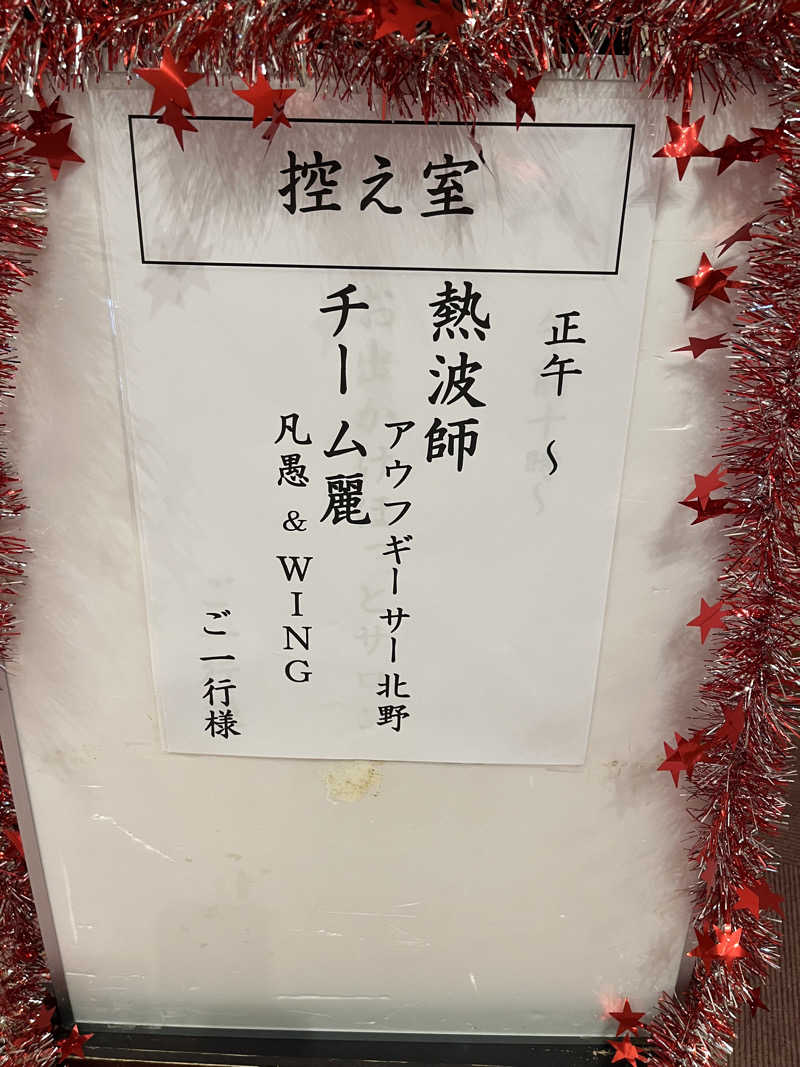 控え室
正午 ～
熱波師
アウフギーサー北野
チーム麗
凡愚 & WING
ご一行様